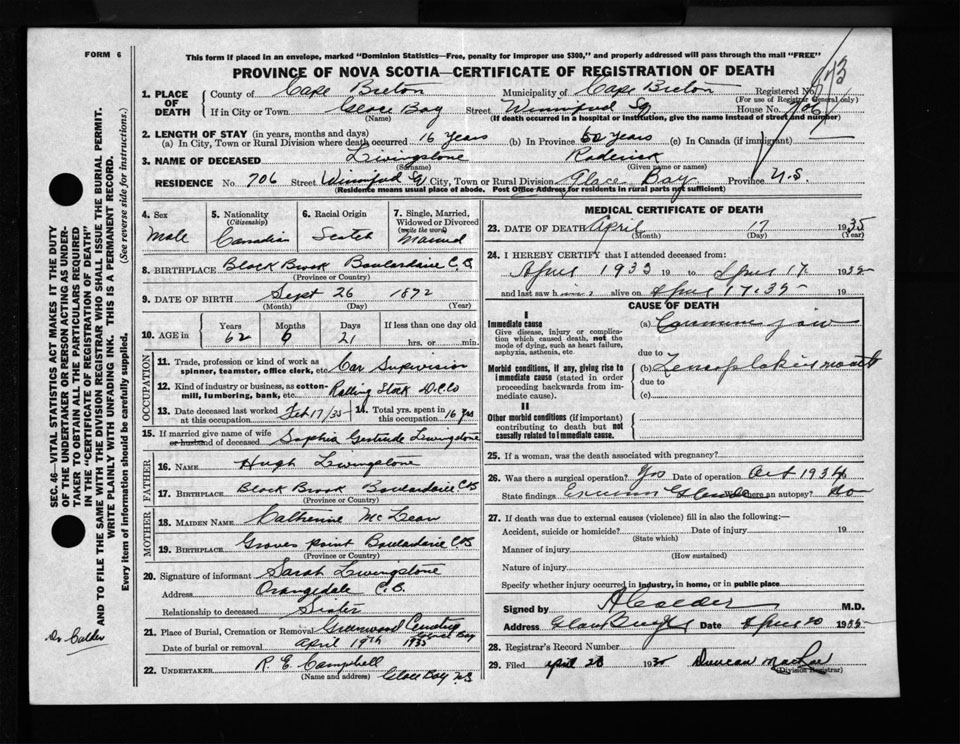 FORM 6
This form if placed in an envelope, marked "Dominion Statistics—Free, penalty for improper use $300," and properly addressed will pass through the mail "FREE"
PROVINCE OF NOVA SCOTIA—CERTIFICATE OF REGISTRATION OF DEATH
1. PLACE OF DEATH
County of Cape Breton Municipality of Cape Breton Registered No.
(For use of Registrar General only)
If in City or Town Glace Bay Street Winnifred Sq House No. 706
(Name) (If death occurred in a hospital or institution, give the name instead of street and number)
2. LENGTH OF STAY (in years, months and days)
(a) In City, Town or Rural Division where death occurred 16 years (b) In Province 62 years (c) In Canada (if immigrant)
3. NAME OF DECEASED Livingstone Roderick
(Surname) (Given name or names)
RESIDENCE No. 706 Street Winnifred Sq City, Town or Rural Division Glace Bay Province N.S.
(Residents means usual place of abode. Post Office Address for residents in rural parts not sufficient)
4. Sex Male
5. Nationality (Citizenship) Canadian
6. Racial Origin Scotch
7. Single, Married, Widowed or Divorced (write the word) Married
8. BIRTHPLACE Black Brook Boulardarie C.B.
(Province or Country)
9. DATE OF BIRTH Sept 26 1872
(Month) (Day) (Year)
10. AGE in Years 62 Months 6 Days 21 If less than one day old hrs. or min.
OCCUPATION
11. Trade, profession or kind of work as spinner, teamster, office clerk, etc. Car Supervision
12. Kind of industry or business, as cotton-mill, lumbering, bank, etc. Rolling Stock D.C.Co
13. Date deceased last worked at this occupation Feb 17/35
14. Total yrs. spent in this occupation 16 yrs
15. If married give name of wife or husband of deceased Sophia Gertrude Livingstone
FATHER
16. NAME Hugh Livingstone
17. BIRTHPLACE Black Brook Boulardarie C.B.
MOTHER
18. MAIDEN NAME Catherine McLean
19. BIRTHPLACE Groves Point Boulardarie C.B.
(Province or Country)
20. Signature of informant Sarah Livingstone
Address Orangedale C.B.
Relationship to deceased Sister
21. Place of Burial, Cremation or Removal Greenwood Cemetery Glace Bay
Date of burial or removal April 19th 1935
22. UNDERTAKER R. E. Campbell
(Name and address) Glace Bay N.S.
MEDICAL CERTIFICATE OF DEATH
23. DATE OF DEATH April 17 1935
(Month) (Day) (Year)
24. I HEREBY CERTIFY that I attended deceased from:
April 1933 19 to April 17 1935
and last saw h alive on April 17. 35 19
CAUSE OF DEATH
I
Immediate cause
Give disease, injury or complication which caused death, not the mode of dying, such as heart failure, asphyxia, asthenia, etc.
(a) Carcinoma jaw
due to
Morbid conditions, if any, giving rise to immediate cause (stated in order proceeding backwards from immediate cause).
(b)
due to
(c)
II
Other morbid conditions (if important) contributing to death but not causally related to immediate cause.
25. If a woman, was the death associated with pregnancy?
26. Was there a surgical operation? Yes Date of operation Oct 1934
State findings Was there an autopsy? No
27. If death was due to external causes (violence) fill in also the following:—
Accident, suicide or homicide? Date of injury 19
(State which)
Manner of injury
(How sustained)
Nature of injury
Specify whether injury occurred in industry, in home, or in public place
Signed by A Calder M.D.
Address Glace Bay Date April 20 1935
28. Registrar's Record Number
29. Filed April 20 1935 Duncan MacRae
(Division Registrar)
SEC. 46—VITAL STATISTICS ACT MAKES IT THE DUTY
OF THE UNDERTAKER OR PERSON ACTING AS UNDER-
TAKER TO OBTAIN ALL THE PARTICULARS REQUIRED
IN THE "CERTIFICATE OF REGISTRATION OF DEATH"
AND TO FILE THE SAME WITH THE DIVISION REGISTRAR WHO SHALL ISSUE THE BURIAL PERMIT.
WRITE PLAINLY WITH UNFADING INK. THIS IS A PERMANENT RECORD.
Every item of information should be carefully supplied. (See reverse side for instructions.)
Dr Calder